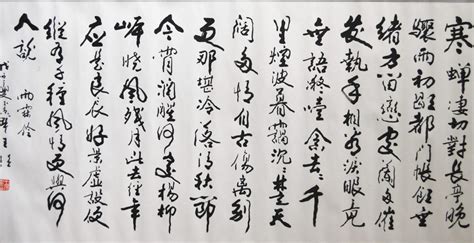 寒蝉凄切對長亭晚
驟雨初歇都門帳飲無
緒方留戀處蘭舟催
發執手相看淚眼竟
無語凝噎念去去千
里煙波暮靄沉沉楚天
闊多情自古傷離別
更那堪冷落清秋節
今宵酒醒何處楊柳
岸曉風殘月此去經年
應是良辰好景虛設便
縱有千種風情更與何
人說 雨霖鈴